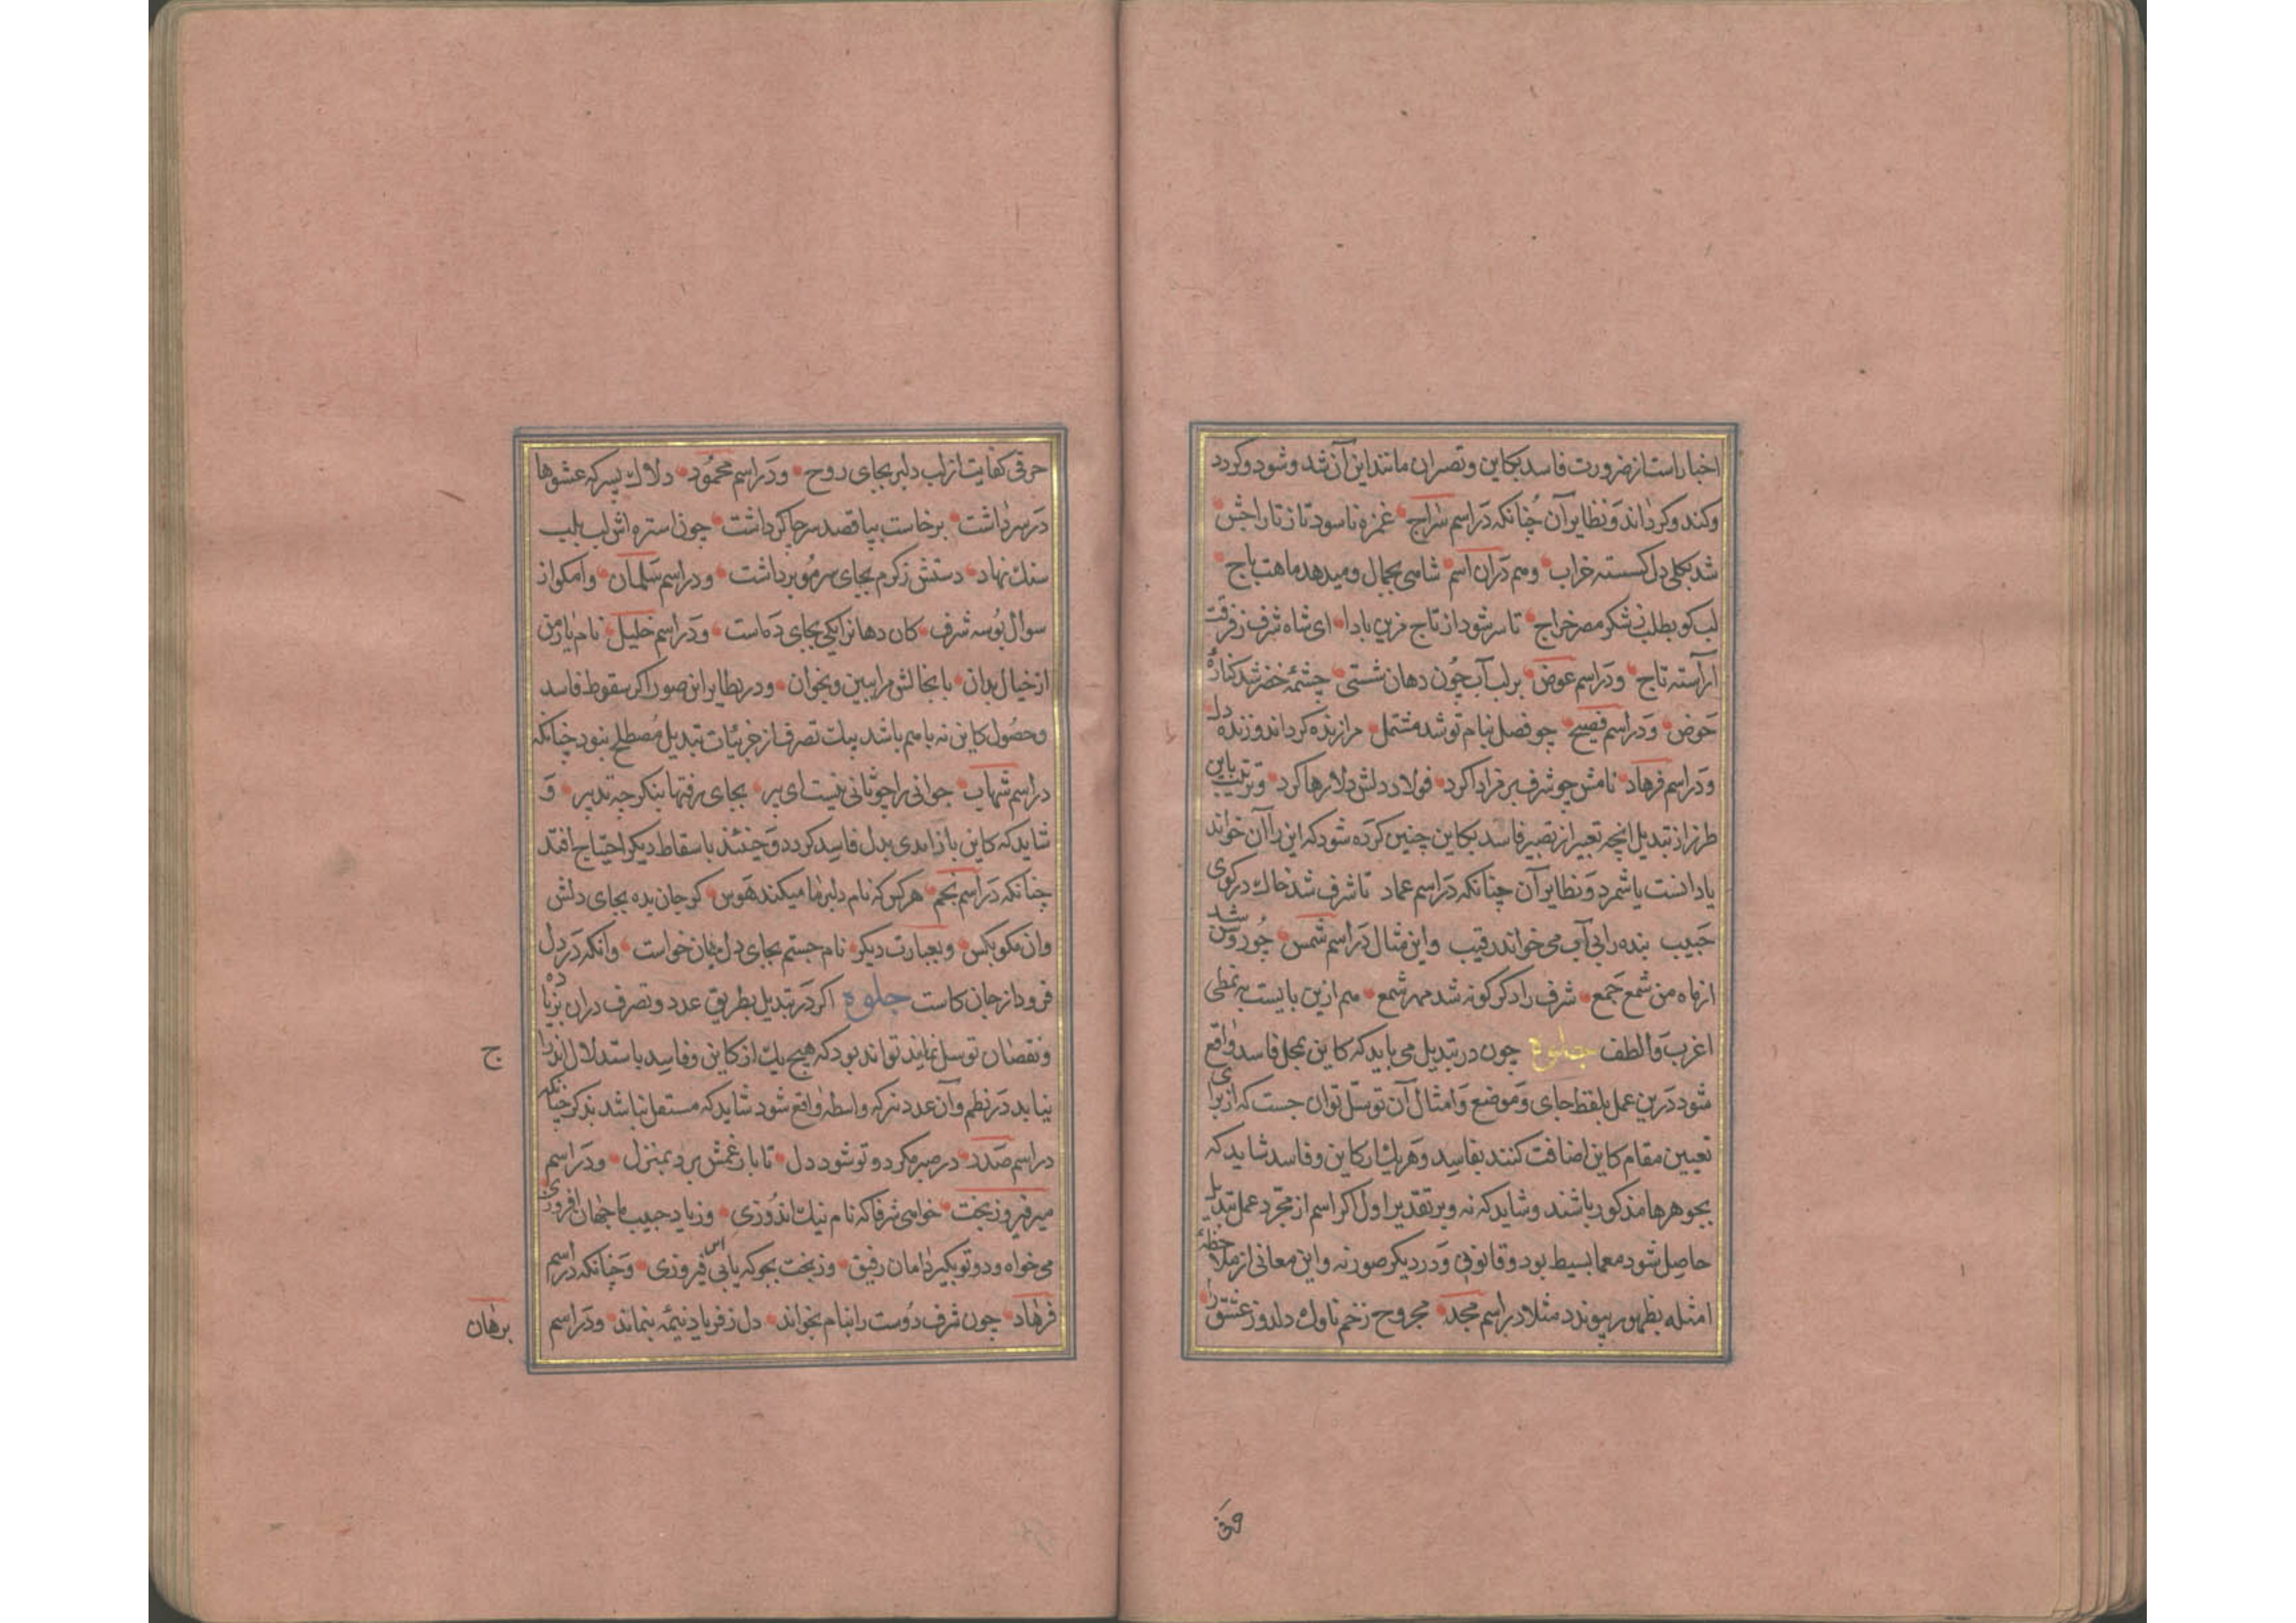 اخبارست از ضرورت فاسد بکاین و تصران مانند این آن شد و شود و کردد
و کند و کرداند و نظایر آن چنانکه در اسم سراج غمزه ناسود تا ز تاراجش
شد بکلی دل کسسته خراب و هم دران اسم شاهی بجمال و میدهد ماهت باج
لب کو بطلب ز شکر مصر خراج تا سر شود از تاج مزین بادا ای شاه شرف ز فرقت
آراسته تاج و در اسم عوض بر لب آب چون دهان شستی چشمه خضر شد کناره
حوض و در اسم فصیح چو فصل بنام تو شد مشتمل مرا زنده کرداند و زنده دل
و در اسم فرهاد نامش چو شرف بر فراد ا کرد فولاد دلش دلا رها کرد و ترتیب باین
طرز از تبدیل انچه تعبیر از تصییر فاسد بکاین چنین کرده شود که این را آن خواند
یا دانست یا شمرد و نظایر آن چنانکه در اسم عماد تا شرف شد خاک در کوی
حبیب بنده را بی آب می خواند رقیب و این مثال در اسم شمس چو روشن شد
از ماه من شمع جمع شرف را دکر کونه شد مهر شمع هم ازین بابست به نمطی
اغرب و الطف جلوه چون در تبدیل می باید که کاین بمحل فاسد واقع
شود درین عمل بلفظ جای و موضع و امثال آن توسل توان جست که از برای
تعیین مقام کاین اضافت کنند بفاسد و هر یک از کاین و فاسد شاید که
بجوهرها مذکور باشند و شاید که نه و بر تقدیر اول اکر اسم از مجرد عمل تبدیل
حاصل شود معما بسیط بود و قانونی و در دیکر صور نه و این معانی از ملاحظه
امثله بظهور پیوندد مثلا در اسم مجد مجروح زخم ناوک دلدوز عشق را
حرفی کفایت از لب دلبر بجای روح و در اسم محمود دلاک پسر که عشوها
در سر داشت برخاست بپا قصد سر چاکر داشت چون استره اش لب بلب
سنک نهاد دستش ز کرم بجای سر مو برداشت و در اسم سلمان وامکو از
سوال بوسه شرف کان دهانرا یکی بجای ده است و در اسم خلیل نام یار من
از خیال بدان با بخالش مرا ببین و بخوان و در نظایر این صور اکر سقوط فاسد
و حصول کاین نه باهم باشد بیک تصرف از جزئیات تبدیل مصطلح نبود چنانکه
در اسم شهاب جوانی را چو ثانی نیست ای پیر بجای رفتها بنکر چه تدبیر و
شاید که کاین با زایدی بدل فاسد کردد و حینئذ باسقاط دیکر احتیاج افتد
چنانکه در اسم نجم هرکس که نام دلبر ما میکند هوس کر جان بده بجای دلش
وان مکو بکس و بعبارت دیکر نام جستم بجای دل جان خواست وانکه در دل
فرود از جان کاست جلوه اکر در تبدیل بطریق عدد و تصرف دران بزیاده
و نقصان توسل نمایند تواند بود که هیچ یک از کاین و فاسد باستدلال اندرا
نیاید در نظم و آن عدد نیز که واسطه واقع شود شاید که مستقل نباشد بذکر چنانکه
در اسم صدر در صبر مکر دو تو شود دل تا بار غمش برد بمنزل و در اسم
میر فیروز بخت خواهی شرفا که نام نیک اندوزی وز یاد حبیب ما جهان افروزی
می خواه و دو تو بکیر دامان رفیق وز بخت بجو که یابی اس فیروزی و چنانکه در اسم
فرهاد چون شرف دوست را بنام بخواند دل ز فریاد نیمه بنماند و در اسم
ج
برهان